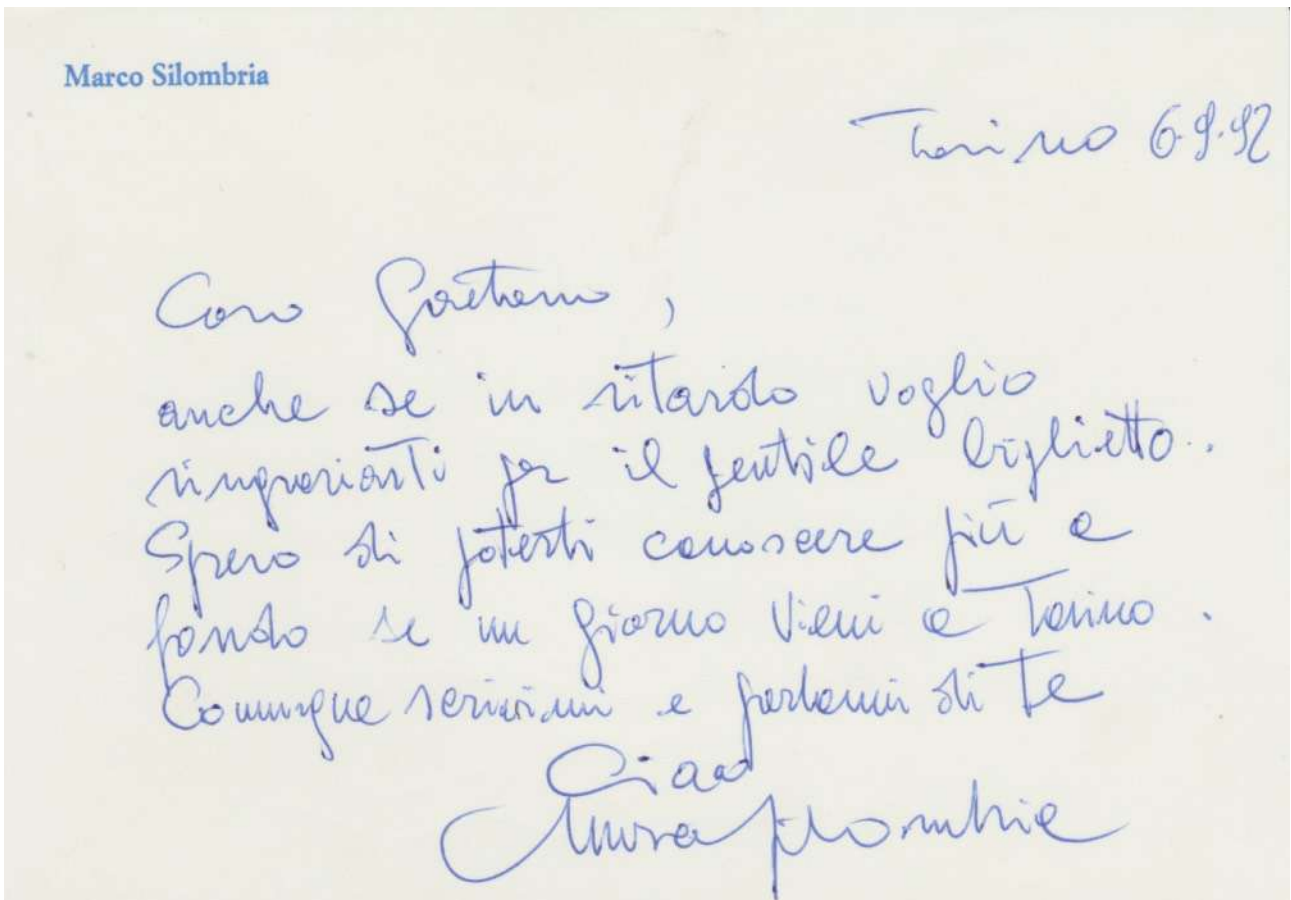 Marco Silombria
Torino 6.9.92
Caro Gaetano,
anche se in ritardo voglio
ringraziarti per il gentile biglietto.
Spero di poterti conoscere più a
fondo se un giorno vieni a Torino.
Comunque scrivimi e parlami di te
Ciao
Marco Silombria